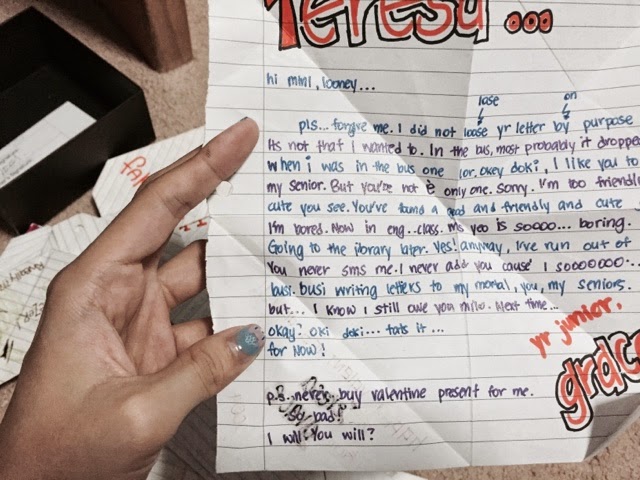 Teresa...
hi mini, looney...
lose on
pls... forgive me. I did not loose yr letter by purpose
Its not that I wanted to. In the bus, most probably it dropped
when i was in the bus one lor. okey doki, I like you to
my senior. But you're not e only one. Sorry. I'm too friendly
cute you see. You've found a good and friendly and cute
I'm bored. Now in eng.. class. Ms yeo is soooo... boring.
Going to the library later. Yes! anyway, I've run out of
You never sms me. I never add you cause' I sooooooo...
busi. busi writing letters to my mortal, you, my seniors.
but... I know i still owe you milo. Next time...
okay? Oki doki... tats it...
for Now!
yr junior,
grace
p.s. never buy valentine present for me.
So bad!
I will. You will?